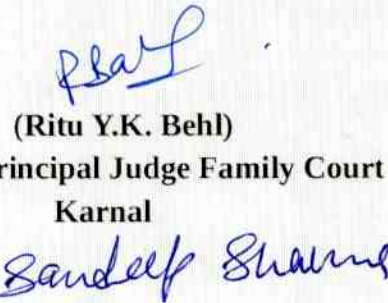 (Ritu Y.K. Behl)
rincipal Judge Family Court
Karnal
Sandeep Sharma